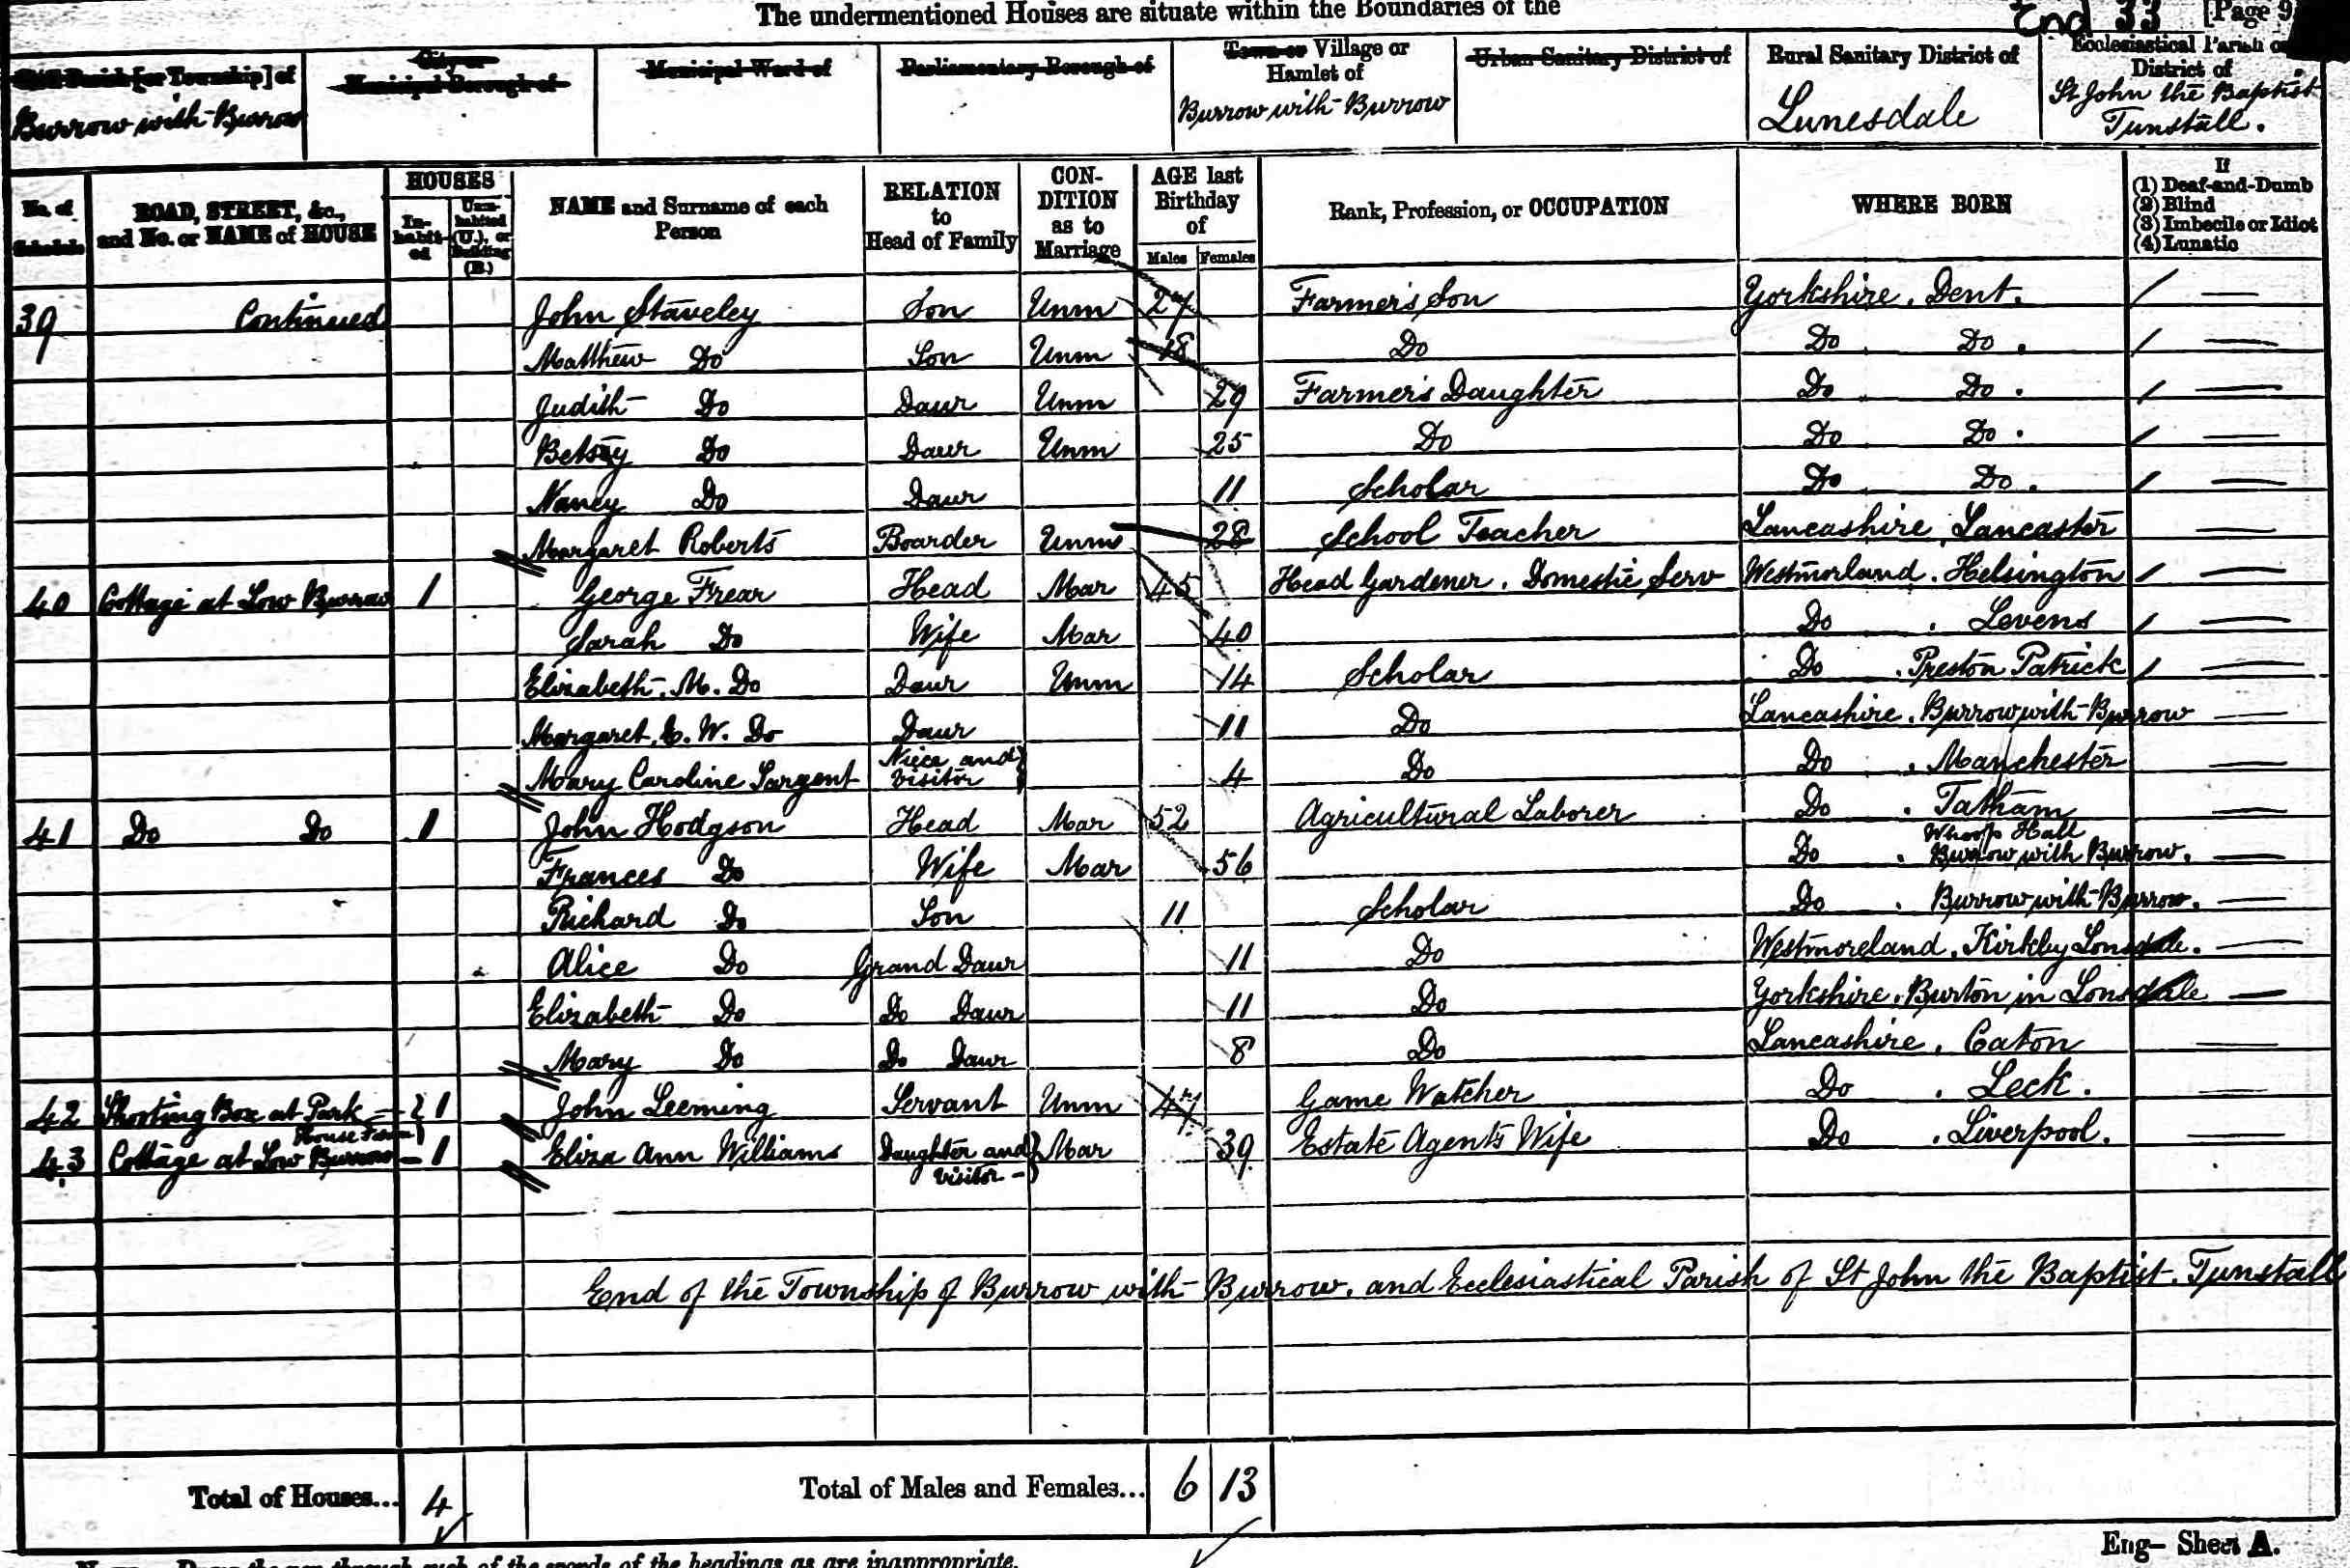 The undermentioned Houses are situate within the Boundaries of the
End 33 [Page 9
Civil Parish [or Township] of
Burrow with Burrow
City or
Municipal Borough of
Municipal Ward of
Parliamentary Borough of
Town or Village or
Hamlet of
Burrow with Burrow
Urban Sanitary District of
Rural Sanitary District of
Lunesdale
Ecclesiastical Parish or
District of
St John the Baptist
Tunstall.
No. of
Schedule
ROAD, STREET, &c.,
and No. or NAME of HOUSE
HOUSES
In-
habit-
ed
Unin-
habited
(U.), or
Building
(B.)
NAME and Surname of each
Person
RELATION
to
Head of Family
CON-
DITION
as to
Marriage
AGE last
Birthday
of
Males Females
Rank, Profession, or OCCUPATION
WHERE BORN
If
(1) Deaf-and-Dumb
(2) Blind
(3) Imbecile or Idiot
(4) Lunatic
39 Continued John Staveley Son Unm 27 Farmer's Son Yorkshire. Dent. —
Matthew Do Son Unm 18 Do Do Do. —
Judith Do Daur Unm 29 Farmer's Daughter Do Do. —
Betsey Do Daur Unm 25 Do Do Do. —
Nancy Do Daur 11 Scholar Do Do. —
Margaret Roberts Boarder Unm 28 School Teacher Lancashire, Lancaster —
40 Cottage at Low Burrow 1 George Frear Head Mar 45 Head Gardener. Domestic Serv Westmorland. Helsington —
Sarah Do Wife Mar 40 Do . Levens —
Elizabeth. M. Do Daur Unm 14 Scholar Do . Preston Patrick —
Margaret. E. W. Do Daur 11 Do Lancashire. Burrow with Burrow —
Mary Caroline Sargent Niece and Visitor } 4 Do Do . Manchester —
41 Do Do 1 John Hodgson Head Mar 52 Agricultural Laborer Do . Tatham —
Frances Do Wife Mar 56 Do . Hall Burrow with Burrow. —
Richard Do Son 11 Scholar Do . Burrow with Burrow. —
Alice Do Grand Daur 11 Do Westmoreland. Kirkby Lonsdale. —
Elizabeth Do Do Daur 11 Do Yorkshire. Burton in Lonsdale —
Mary Do Do Daur 8 Do Lancashire. Caton —
42 Shooting Box at Park House Farm } 1 John Leeming Servant Unm 47 Game Watcher Do . Leck. —
43 Cottage at Low Burrow — 1 Eliza Ann Williams Daughter and Visitor — } Mar 39 Estate Agents Wife Do . Liverpool. —
End of the Township of Burrow with Burrow. and Ecclesiastical Parish of St John the Baptist. Tunstall
Total of Houses... 4
Total of Males and Females... 6 13
Eng— Sheet A.